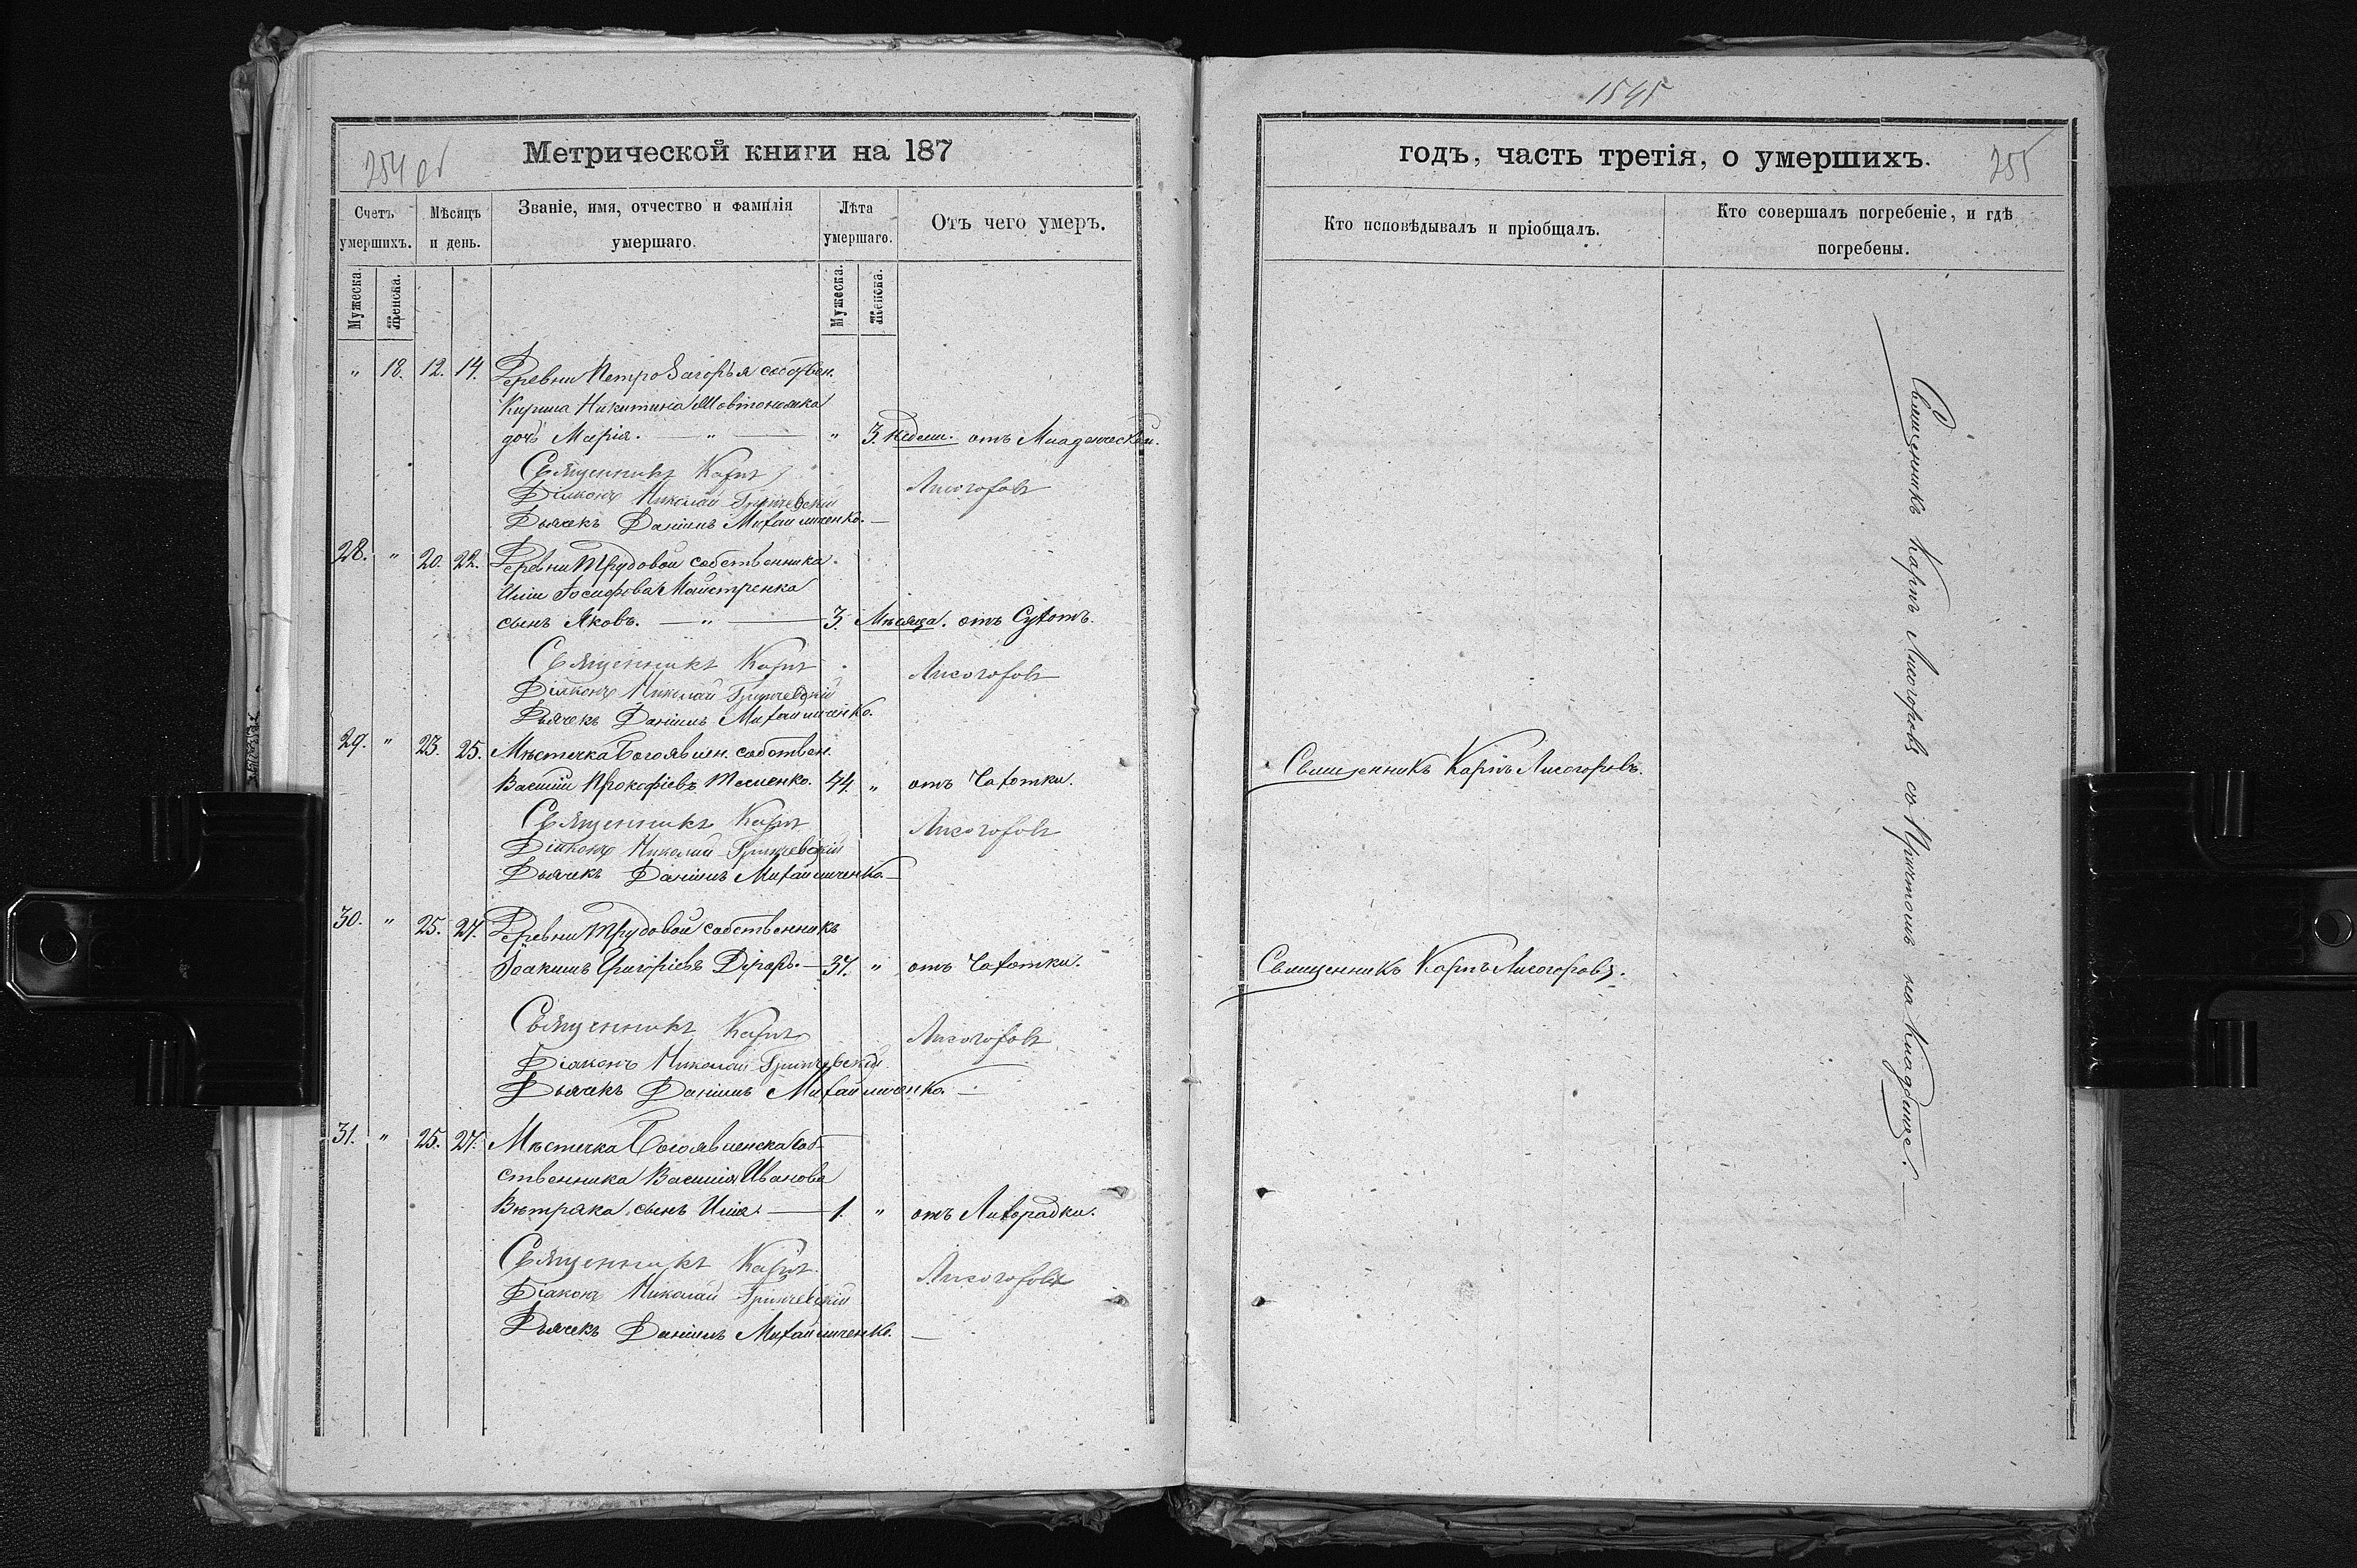 1545
254 об
Метрической книги на 187
годъ, часть третія, о умершихъ.
255
Счетъ умершихъ.
Мѣсяцъ и день.
Званіе, имя, отчество и фамилія умершаго.
Лѣта умершаго.
Отъ чего умеръ.
Кто исповѣдывалъ и пріобщалъ.
Кто совершалъ погребеніе, и гдѣ погребены.
Мужеска.
Женска.
Мужеска.
Женска.
" 18. 12. 14. Деревни Петрозагорья собствен.
Никитина
дочь Марія. — " — " 3. недели. отъ Младенческой.
Священникъ Карпъ Лисогоровъ
Діаконъ Николай Гринчевскій
Дьячекъ Даніилъ Михайличенко. —
28. " 20. 22. Деревни Трудовой собственника
Иліи Іосифова Майстренка
сынъ Яковъ. — " — 3. Мѣсяца. отъ Сухотъ.
Священникъ Карпъ Лисогоровъ
Діаконъ Николай Гринчевскій
Дьячекъ Даніилъ Михайличенко.
29. " 23. 25. Мѣстечка Богоявлен. собствен.
Василій Прокофіевъ 44. " отъ Чахотки. Священникъ Карпъ Лисогоровъ.
Священникъ Карпъ Лисогоровъ
Діаконъ Николай Гринчевскій
Дьячекъ Даніилъ Михайличенко —
30. " 25. 27. Деревни Трудовой собственникъ
Іоакимъ Григоріевъ — 37. " отъ Чахотки. Священникъ Карпъ Лисогоровъ.
Священникъ Карпъ Лисогоровъ
Діаконъ Николай Гринчевскій
Дьячекъ Даніилъ Михайличенко. —
31. " 25. 27. Мѣстечка Богоявленска соб-
ственника Василія Иванова
Вѣтряка сынъ Илія. — 1. " отъ Лихорадки.
Священникъ Карпъ Лисогоровъ
Діаконъ Николай Гринчевскій
Дьячекъ Даніилъ Михайличенко. —
Священникъ Карпъ Лисогоровъ съ Причтомъ на Кладбище. —